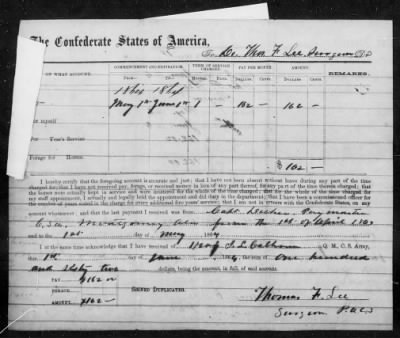 The Confederate States of America,
To Dr. Thos F. Lee, Surgeon
ON WHAT ACCOUNT.
COMMENCEMENT AND EXPIRATION.
TERM OF SERVICE CHARGED.
PAY PER MONTH.
AMOUNT.
REMARKS.
From— To— Months. Days. Dollars. Cents. Dollars. Cents.
1864 1864
May 1st June 1st 1 162 162
myself
Years' Service
Forage for Horses.
$ 162
I hereby certify that the foregoing account is accurate and just; that I have not been absent without leave during any part of the
time charged for; that I have not received pay, forage, or received money in lieu of any part thereof, for any part of the time therein charged; that the
horses were actually kept in service and were mustered for the whole of the time charged; that for the whole of the time charged for
my staff appointment, I actually and legally held the appointment and did duty in the department; that I have been a commissioned officer for the
number of years stated in the charge for every additional five years' service; that I am not in arrears with the Confederate States, on any
account whatsoever and that the last payment I received was from Capt. Paymaster
C.S.A. Montgomery Ala from the 1st of April 1864
and to the 1st day of May 1864
I at the same time acknowledge that I have received of J. L. Calhoun Q. M., C. S. Army,
this 1st day of June 1864 the sum of One hundred
and sixty two dollars, being the amount, in full, of said account.
PAY $162
FORAGE,
AMOUNT, $162
SIGNED DUPLICATES.
Thomas F. Lee
Surgeon P.A.C.S